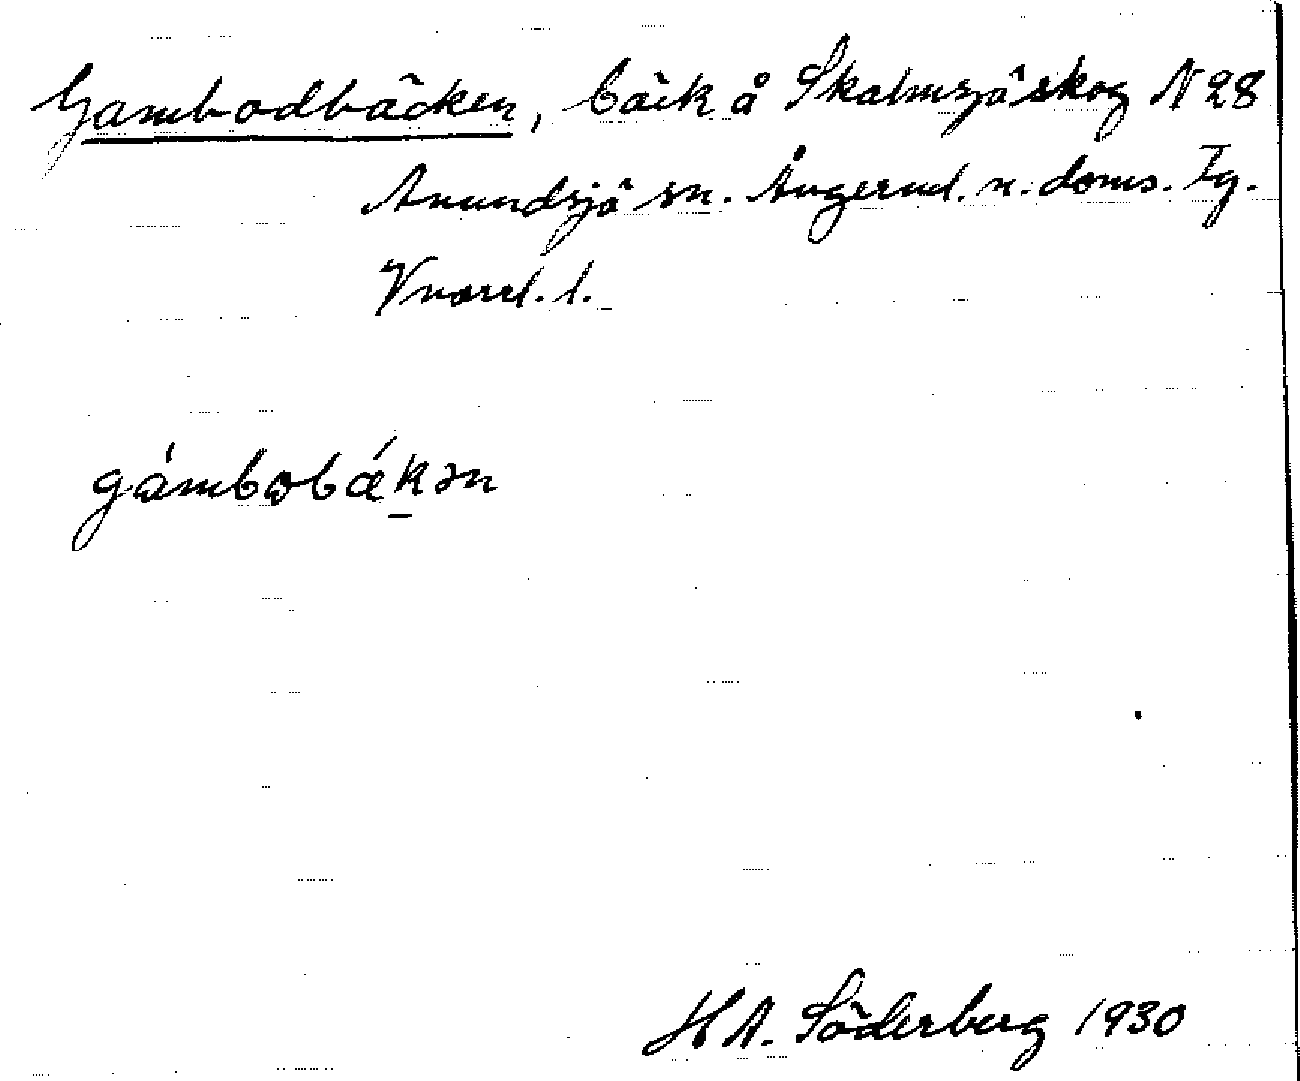 Gambodbäcken, bäck å Skalmsjöskog N 28
Anundsjö sn. Ångerml. n. doms. Tg.
Vnorrl. l.
gámbobǽkən
H A. Söderberg 1930